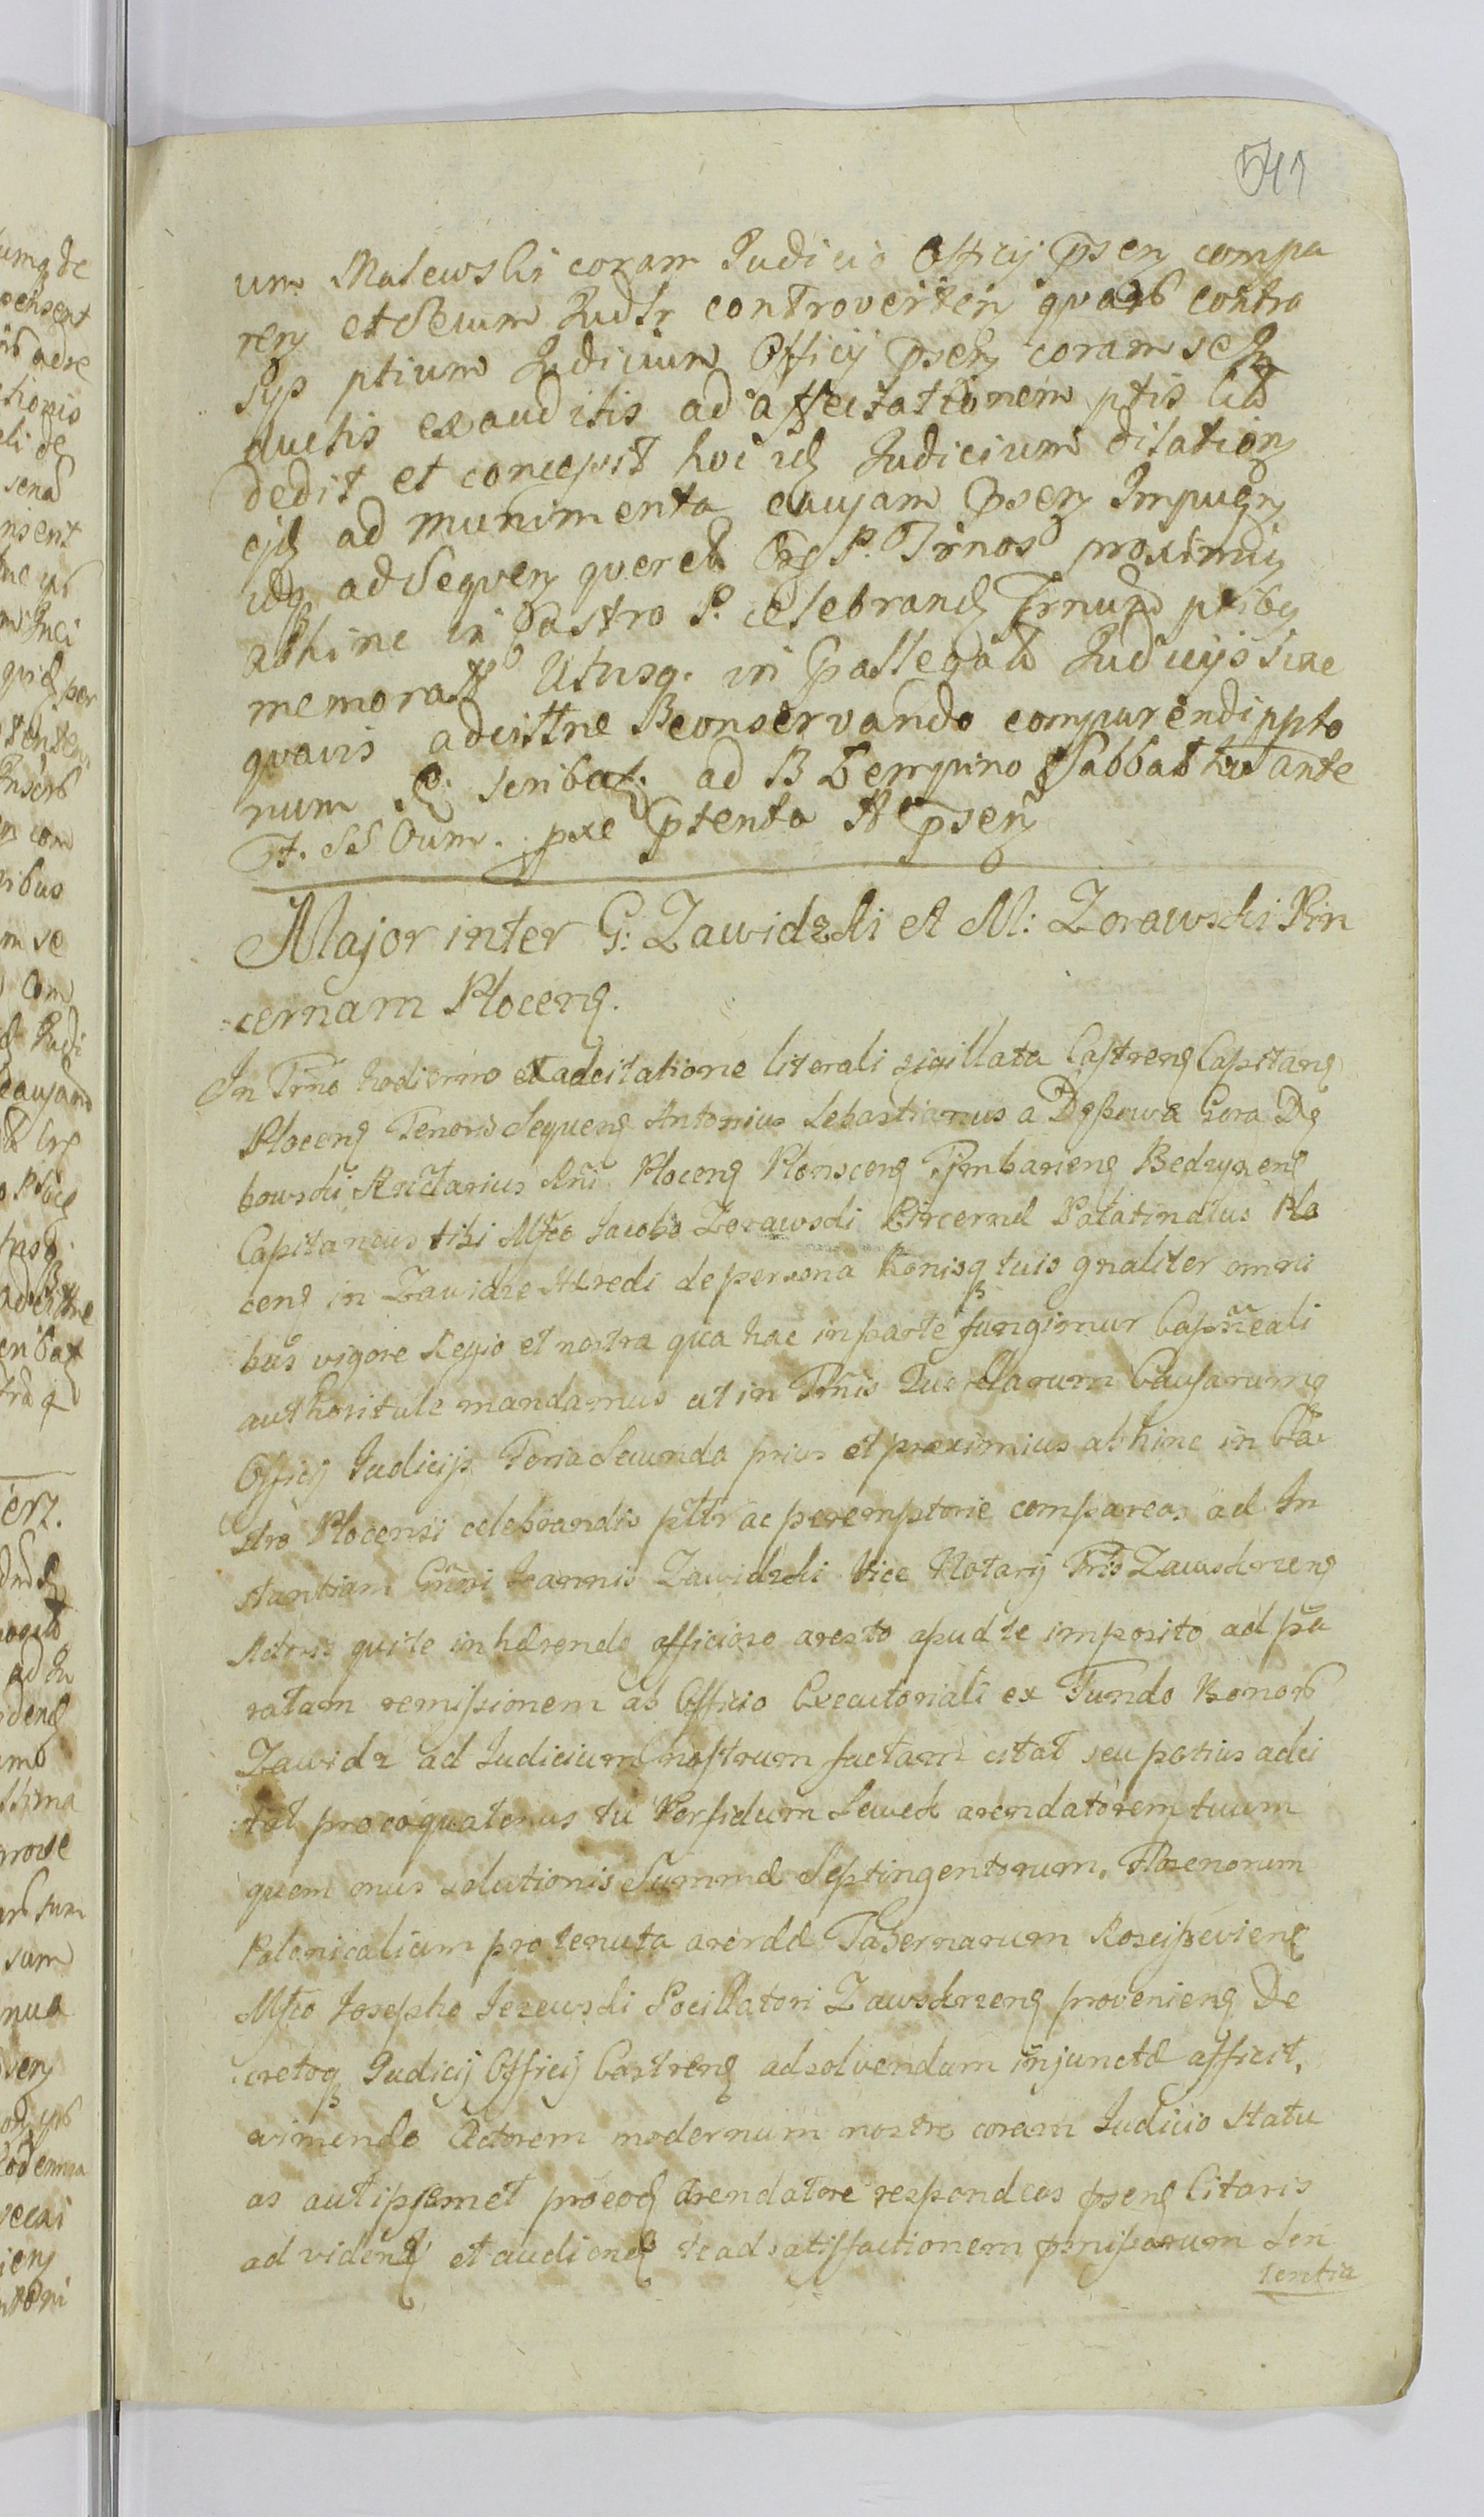 541
um Malewski coram Judicio Officij pſen compa
ren et Seium Judlr controverten quarб contra
sijs ptium Judicium Officij pſen coram se In
ductis exauditis ad affectationem ptis
dedit et concepit hoc id Judicium dilation
ejd ad munimenta cauſam pſen Impugn
idq ad Sequen querel Trnos proximius
abhinc in Castro P. celebrand Trnum ptibq
memorat Utrisq. in pallegat Judicijs sine
quavis adcittne conservando comparendi ppto
num scribat. ad B Sabbatho ante
F. SS Oum. pxe ptenta A pſen
Major inter G: Zawidzki et M: Zorawski Pin
cernam Plocenſ.
In Trno hodierno ex adcitatione literali sigillata Caſtrenſ Capitanſ
Plocenſ Tenoris Sequenſ Antonius Sebastianus a Dębowa Gora Dę
bowski Plocenſ Plonscenſ Bedzynenſ
Capitaneus tibi Mfco Jacobo Zorawski Pincernæ Palatinatus Plo
cenſ in Zawidze Hæredi de persona Bonisq tuis gnaliter omni
bus vigore Regio et nostra qua hac in parte fungimur Capneali
authoritate mandamus ut in Trnis Querellarum Cauſarumq
Officij Judicijs Feria Secunda prius et proximius abhinc in Ca
stro Plocensi celebrandis pltr ac peremptorie compareas ad In
stantiam Gnosi Joannis Zawidzki Vice Notarij Tris Zawskrzenſ
Actoris qui te inhærendo officioso aresto apud te imposito ad pa
ratam remiſsionem ab Officio Executoriali ex Fundo Bonorб
Zawidz ad Judicium noſtrum factam citat seu potius adci
tat pro eo quatenus tu Perfidum Lewek arendatorem tuum
quem onus solutionis Summæ Septingentorum, Florenorum
Polonicalium pro tenuta arendæ Tabernarum Rosciſzevienſ
Mfco Josepho Jezewski Pocillatori Zawskrzenſ provenienſ De
cretoq Judicij Officij Castrenſ adsolvendum injunctæ afficit,
eximendo Actorem modernum nostro coram Judicio Statu
as aut ipſemet pro eod Arendatore respondeas pſenſ Citaris
ad videnđ et audienđ te ad satisfactionem pmiſsorum Sen
tentia